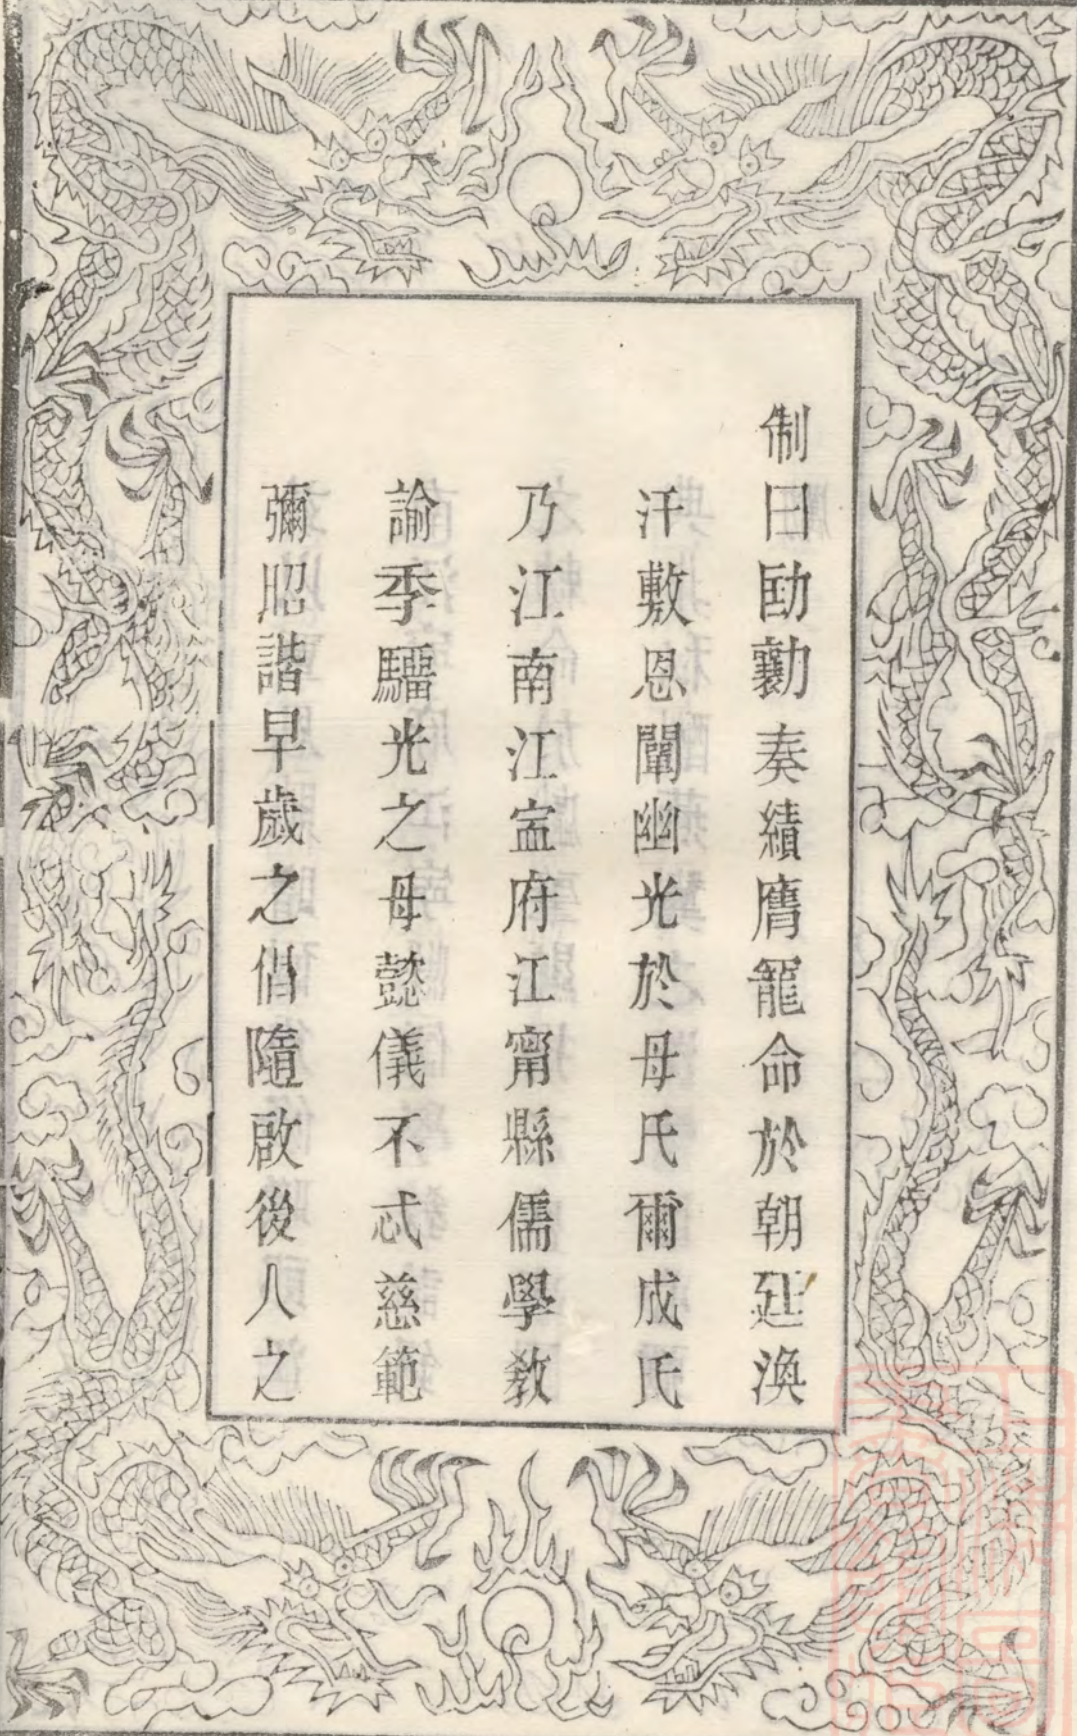 制曰劻勷奏績膺寵命於朝廷渙
汗敷恩闡幽光於母氏爾成氏
乃江南江寍府江甯縣儒學教
諭季驑光之母懿儀不忒慈範
彌昭諧早歲之倡隨啟後人之